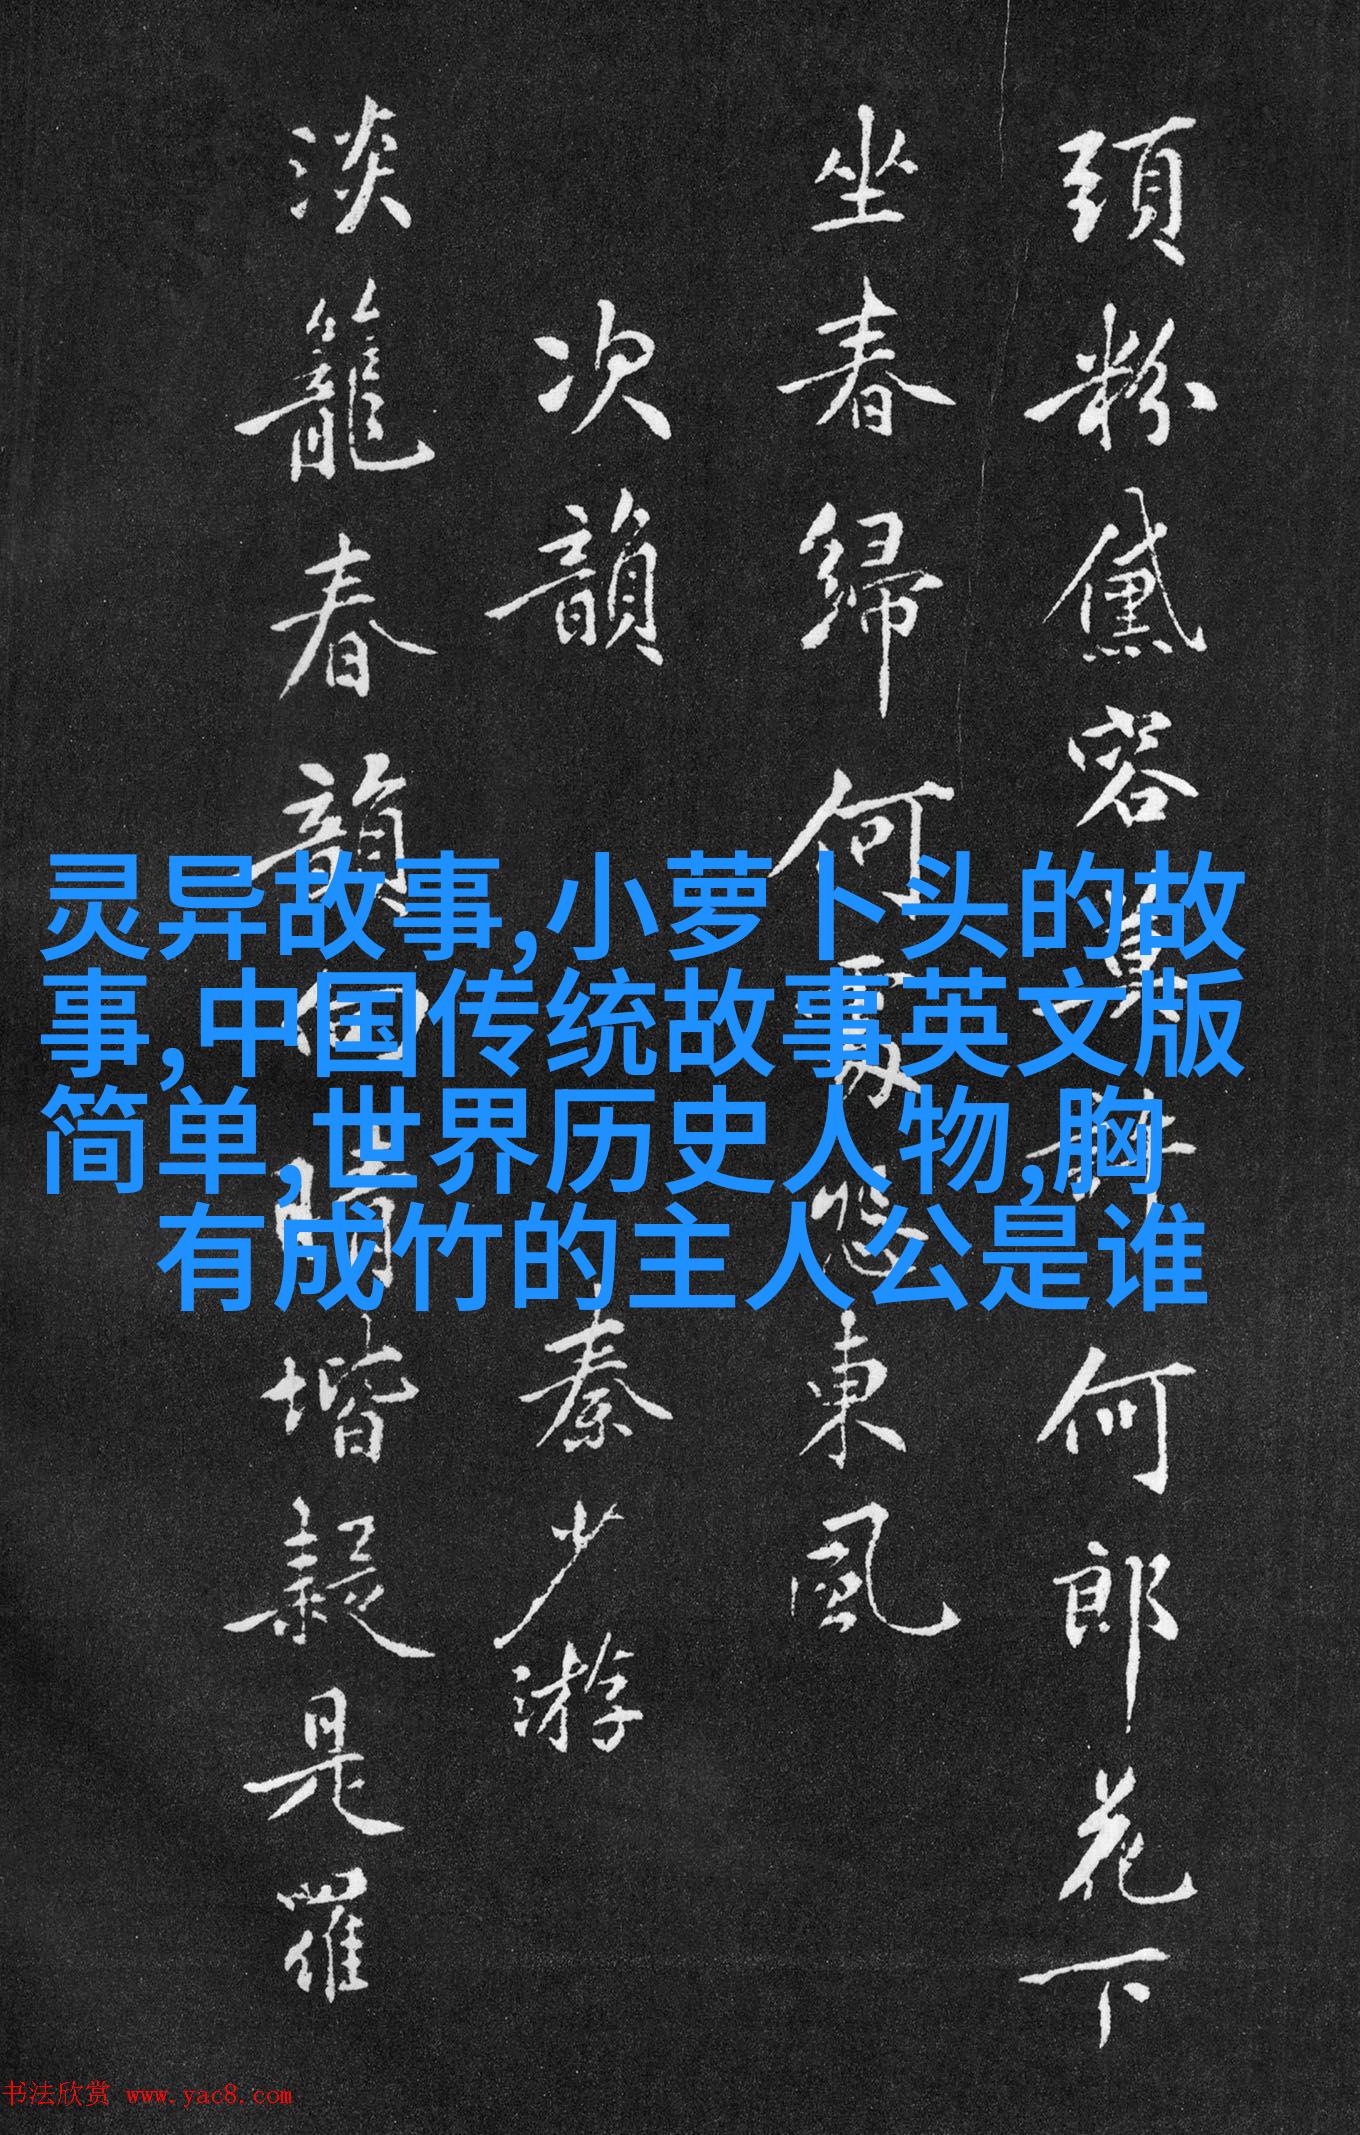 頭粉黛容何郎花下
坐春歸何東風
次韻秦少游
淡籠春韻向晴堦疑是羅
灵异故事,小萝卜头的故
事,中国传统故事英文版
简单,世界历史人物,胸
有成竹的主人公是谁
书法欣赏 www.yac8.com